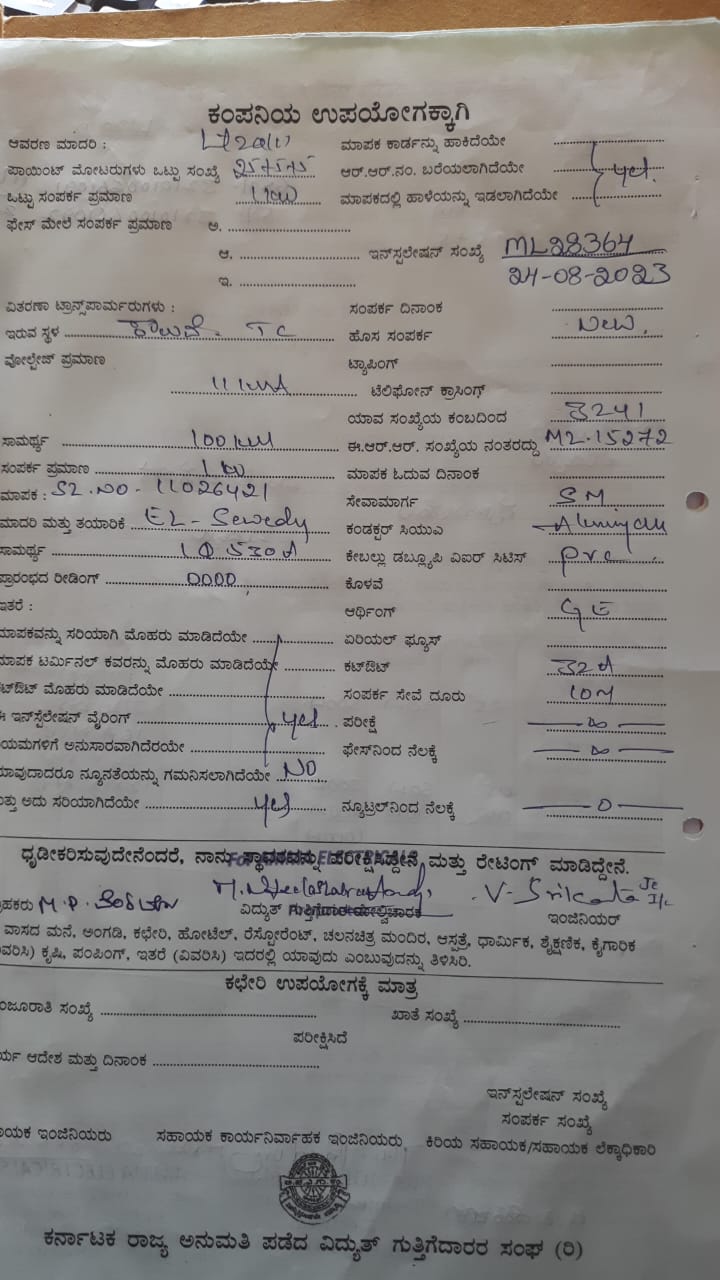 ಕಂಪನಿಯ ಉಪಯೋಗಕ್ಕಾಗಿ
ಆವರಣ ಮಾದರಿ : ಮಾಪಕ ಕಾರ್ಡನ್ನು ಹಾಕಿದೆಯೇ
ಪಾಯಿಂಟ್ ಮೋಟರುಗಳು ಒಟ್ಟು ಸಂಖ್ಯೆ 2575175 ಆರ್.ಆರ್.ನಂ. ಬರೆಯಲಾಗಿದೆಯೇ yes.
ಒಟ್ಟು ಸಂಪರ್ಕ ಪ್ರಮಾಣ 1 KW ಮಾಪಕದಲ್ಲಿ ಹಾಳೆಯನ್ನು ಇಡಲಾಗಿದೆಯೇ
ಫೇಸ್ ಮೇಲೆ ಸಂಪರ್ಕ ಪ್ರಮಾಣ ಅ.
ಆ. ಇನ್‌ಸ್ಪಲೇಷನ್ ಸಂಖ್ಯೆ ML28364
ಇ. 24-08-2023
ವಿತರಣಾ ಟ್ರಾನ್ಸ್‌ಪಾರ್ಮರುಗಳು : ಸಂಪರ್ಕ ದಿನಾಂಕ
ಇರುವ ಸ್ಥಳ TC ಹೊಸ ಸಂಪರ್ಕ New.
ವೋಲ್ಟೇಜ್ ಪ್ರಮಾಣ ಟ್ಯಾಪಿಂಗ್
ಟೆಲಿಫೋನ್ ಕ್ರಾಸಿಂಗ್
ಯಾವ ಸಂಖ್ಯೆಯ ಕಂಬದಿಂದ 3241
ಸಾಮರ್ಥ್ಯ ಈ.ಆರ್.ಆರ್. ಸಂಖ್ಯೆಯ ನಂತರದ್ದು ML.15272
ಸಂಪರ್ಕ ಪ್ರಮಾಣ 1 KW ಮಾಪಕ ಓದುವ ದಿನಾಂಕ
ಮಾಪಕ : SL.NO - 11026421 ಸೇವಾಮಾರ್ಗ S M.
ಮಾದರಿ ಮತ್ತು ತಯಾರಿಕೆ EL - Sewedy ಕಂಡಕ್ಟರ್ ಸಿಯುಎ
ಸಾಮರ್ಥ್ಯ ಕೇಬಲ್ಲು ಡಬ್ಲ್ಯೂಪಿ ವಿಐರ್ ಸಿಟಿಸ್ pvc
ಪ್ರಾರಂಭದ ರೀಡಿಂಗ್ 0000, ಕೊಳವೆ
ಇತರೆ : ಆರ್ಥಿಂಗ್ G E
ಮಾಪಕವನ್ನು ಸರಿಯಾಗಿ ಮೊಹರು ಮಾಡಿದೆಯೇ ಏರಿಯಲ್ ಫ್ಯೂಸ್
ಮಾಪಕ ಟರ್ಮಿನಲ್ ಕವರನ್ನು ಮೊಹರು ಮಾಡಿದೆಯೇ ಕಟ್‌ಔಟ್ 32 A
ಕಟ್‌ಔಟ್ ಮೊಹರು ಮಾಡಿದೆಯೇ ಸಂಪರ್ಕ ಸೇವೆ ದೂರು 10M
ಈ ಇನ್‌ಸ್ಟಲೇಷನ್ ವೈರಿಂಗ್ yes ಪರೀಕ್ಷೆ ∞
ನಿಯಮಗಳಿಗೆ ಅನುಸಾರವಾಗಿದೆರಯೇ ಫೇಸ್‌ನಿಂದ ನೆಲಕ್ಕೆ ∞
ಯಾವುದಾದರೂ ನ್ಯೂನತೆಯನ್ನು ಗಮನಿಸಲಾಗಿದೆಯೇ NO
ಮತ್ತು ಅದು ಸರಿಯಾಗಿದೆಯೇ yes ನ್ಯೂಟ್ರಲ್‌ನಿಂದ ನೆಲಕ್ಕೆ 0
ಧೃಡೀಕರಿಸುವುದೇನೆಂದರೆ, ನಾನು ಸ್ಥಾವರವನ್ನು ಪರೀಕ್ಷಿಸಿದ್ದೇನೆ ಮತ್ತು ರೇಟಿಂಗ್ ಮಾಡಿದ್ದೇನೆ.
ಗ್ರಾಹಕರು V- Srikanta
ವಿದ್ಯುತ್ ಗುತ್ತಿಗೆದಾರ/ಮೇಲ್ವಿಚಾರಕ ಇಂಜಿನಿಯರ್
ವಾಸದ ಮನೆ, ಅಂಗಡಿ, ಕಛೇರಿ, ಹೋಟೆಲ್, ರೆಸ್ಟೋರೆಂಟ್, ಚಲನಚಿತ್ರ ಮಂದಿರ, ಆಸ್ಪತ್ರೆ, ಧಾರ್ಮಿಕ, ಶೈಕ್ಷಣಿಕ, ಕೈಗಾರಿಕ
(ವಿವರಿಸಿ) ಕೃಷಿ, ಪಂಪಿಂಗ್, ಇತರೆ (ವಿವರಿಸಿ) ಇದರಲ್ಲಿ ಯಾವುದು ಎಂಬುವುದನ್ನು ತಿಳಿಸಿರಿ.
ಕಛೇರಿ ಉಪಯೋಗಕ್ಕೆ ಮಾತ್ರ
ಮಂಜೂರಾತಿ ಸಂಖ್ಯೆ ಖಾತೆ ಸಂಖ್ಯೆ
ಪರೀಕ್ಷಿಸಿದೆ
ಕಾರ್ಯ ಆದೇಶ ಮತ್ತು ದಿನಾಂಕ
ಇನ್‌ಸ್ಪಲೇಷನ್ ಸಂಖ್ಯೆ
ಸಂಪರ್ಕ ಸಂಖ್ಯೆ
ಸಹಾಯಕ ಇಂಜಿನಿಯರು ಸಹಾಯಕ ಕಾರ್ಯನಿರ್ವಾಹಕ ಇಂಜಿನಿಯರು, ಕಿರಿಯ ಸಹಾಯಕ/ಸಹಾಯಕ ಲೆಕ್ಕಾಧಿಕಾರಿ
ಕರ್ನಾಟಕ ರಾಜ್ಯ ಅನುಮತಿ ಪಡೆದ ವಿದ್ಯುತ್ ಗುತ್ತಿಗೆದಾರರ ಸಂಘ (ರಿ)